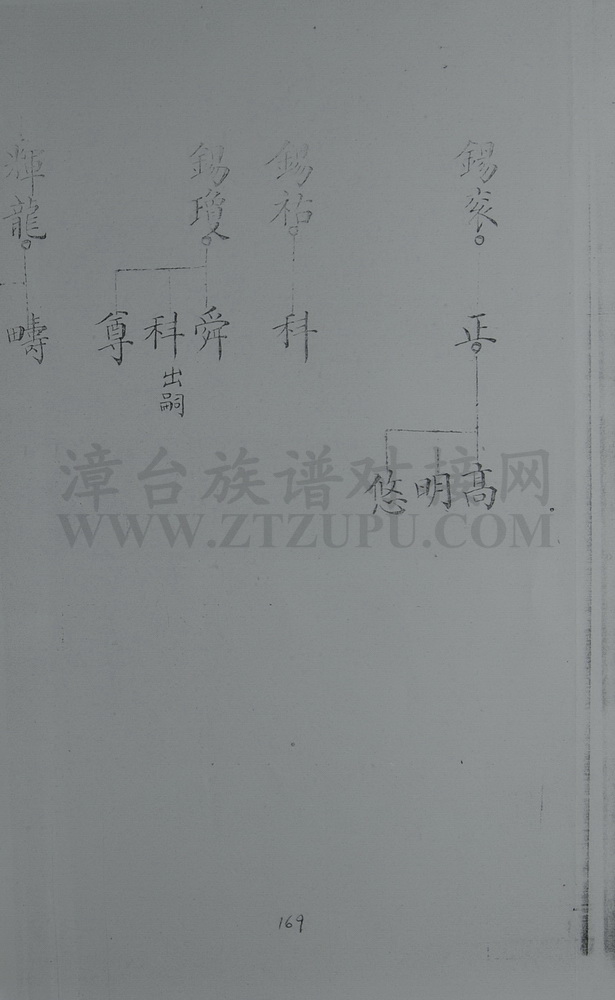 錫衮
正
高
明
悠
錫祐
科
錫瓊
舜
科
出嗣
尊
輝龍
疇
漳台族谱对接网
WWW.ZTZUPU.COM
169